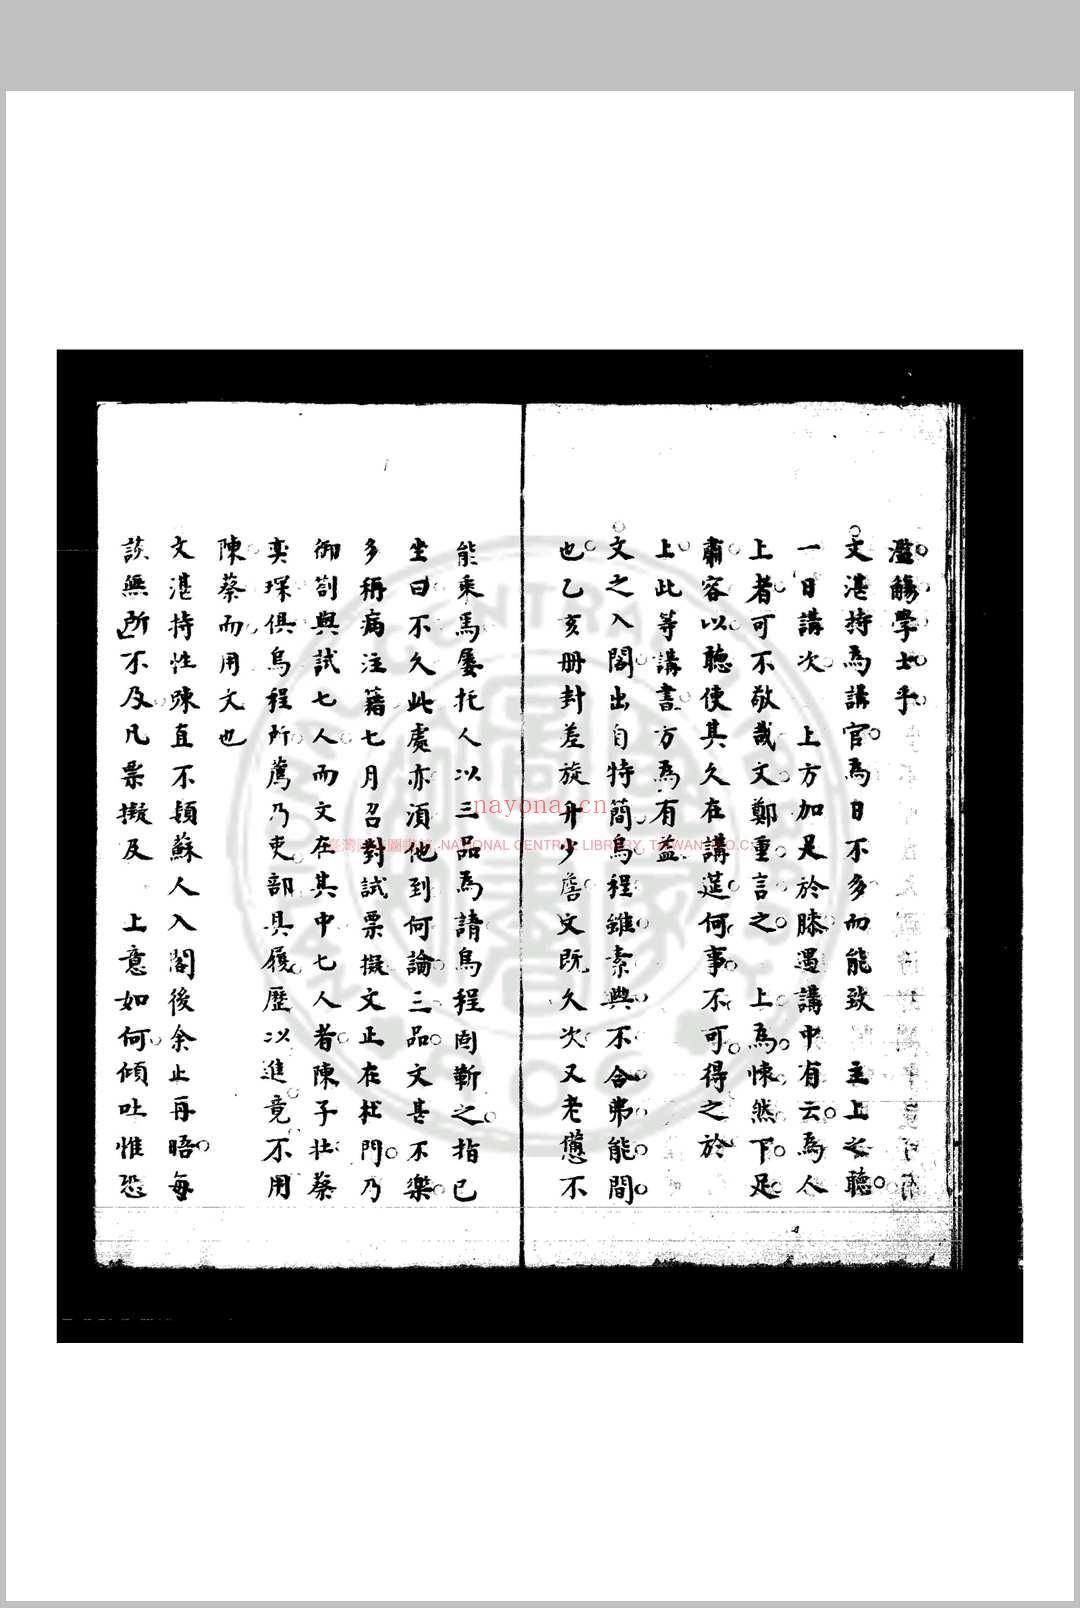 濫觴學士乎
文湛持爲講官爲日不多而能致 主上之聽
一日講次 上方加足於膝遇講中有云爲人
上者可不敬哉文鄭重言之 上爲悚然下足
肅容以聽使其久在講筵何事不可得之於
上此等講書方爲有益
文之入閣出自特簡烏程雖素與不合弗能間
也乙亥冊封差旋升少詹文既久次又老憊不
能乘馬屢托人以三品爲請烏程固靳之指己
坐曰不久此處亦須他到何論三品文甚不樂
多稱病注籍七月召對試票擬文正在杜門乃
御劄與試七人而文在其中七人者陳子壯蔡
奕琛俱烏程所薦乃吏部具履歷以進竟不用
陳蔡而用文也
文湛持性踈直不類蘇人入閣後余止再晤每
談無所不及凡票擬及 上意如何傾吐惟恐
nayona.cn
NATIONAL CENTRAL LIBRARY, TAIWAN (R.O.C.)